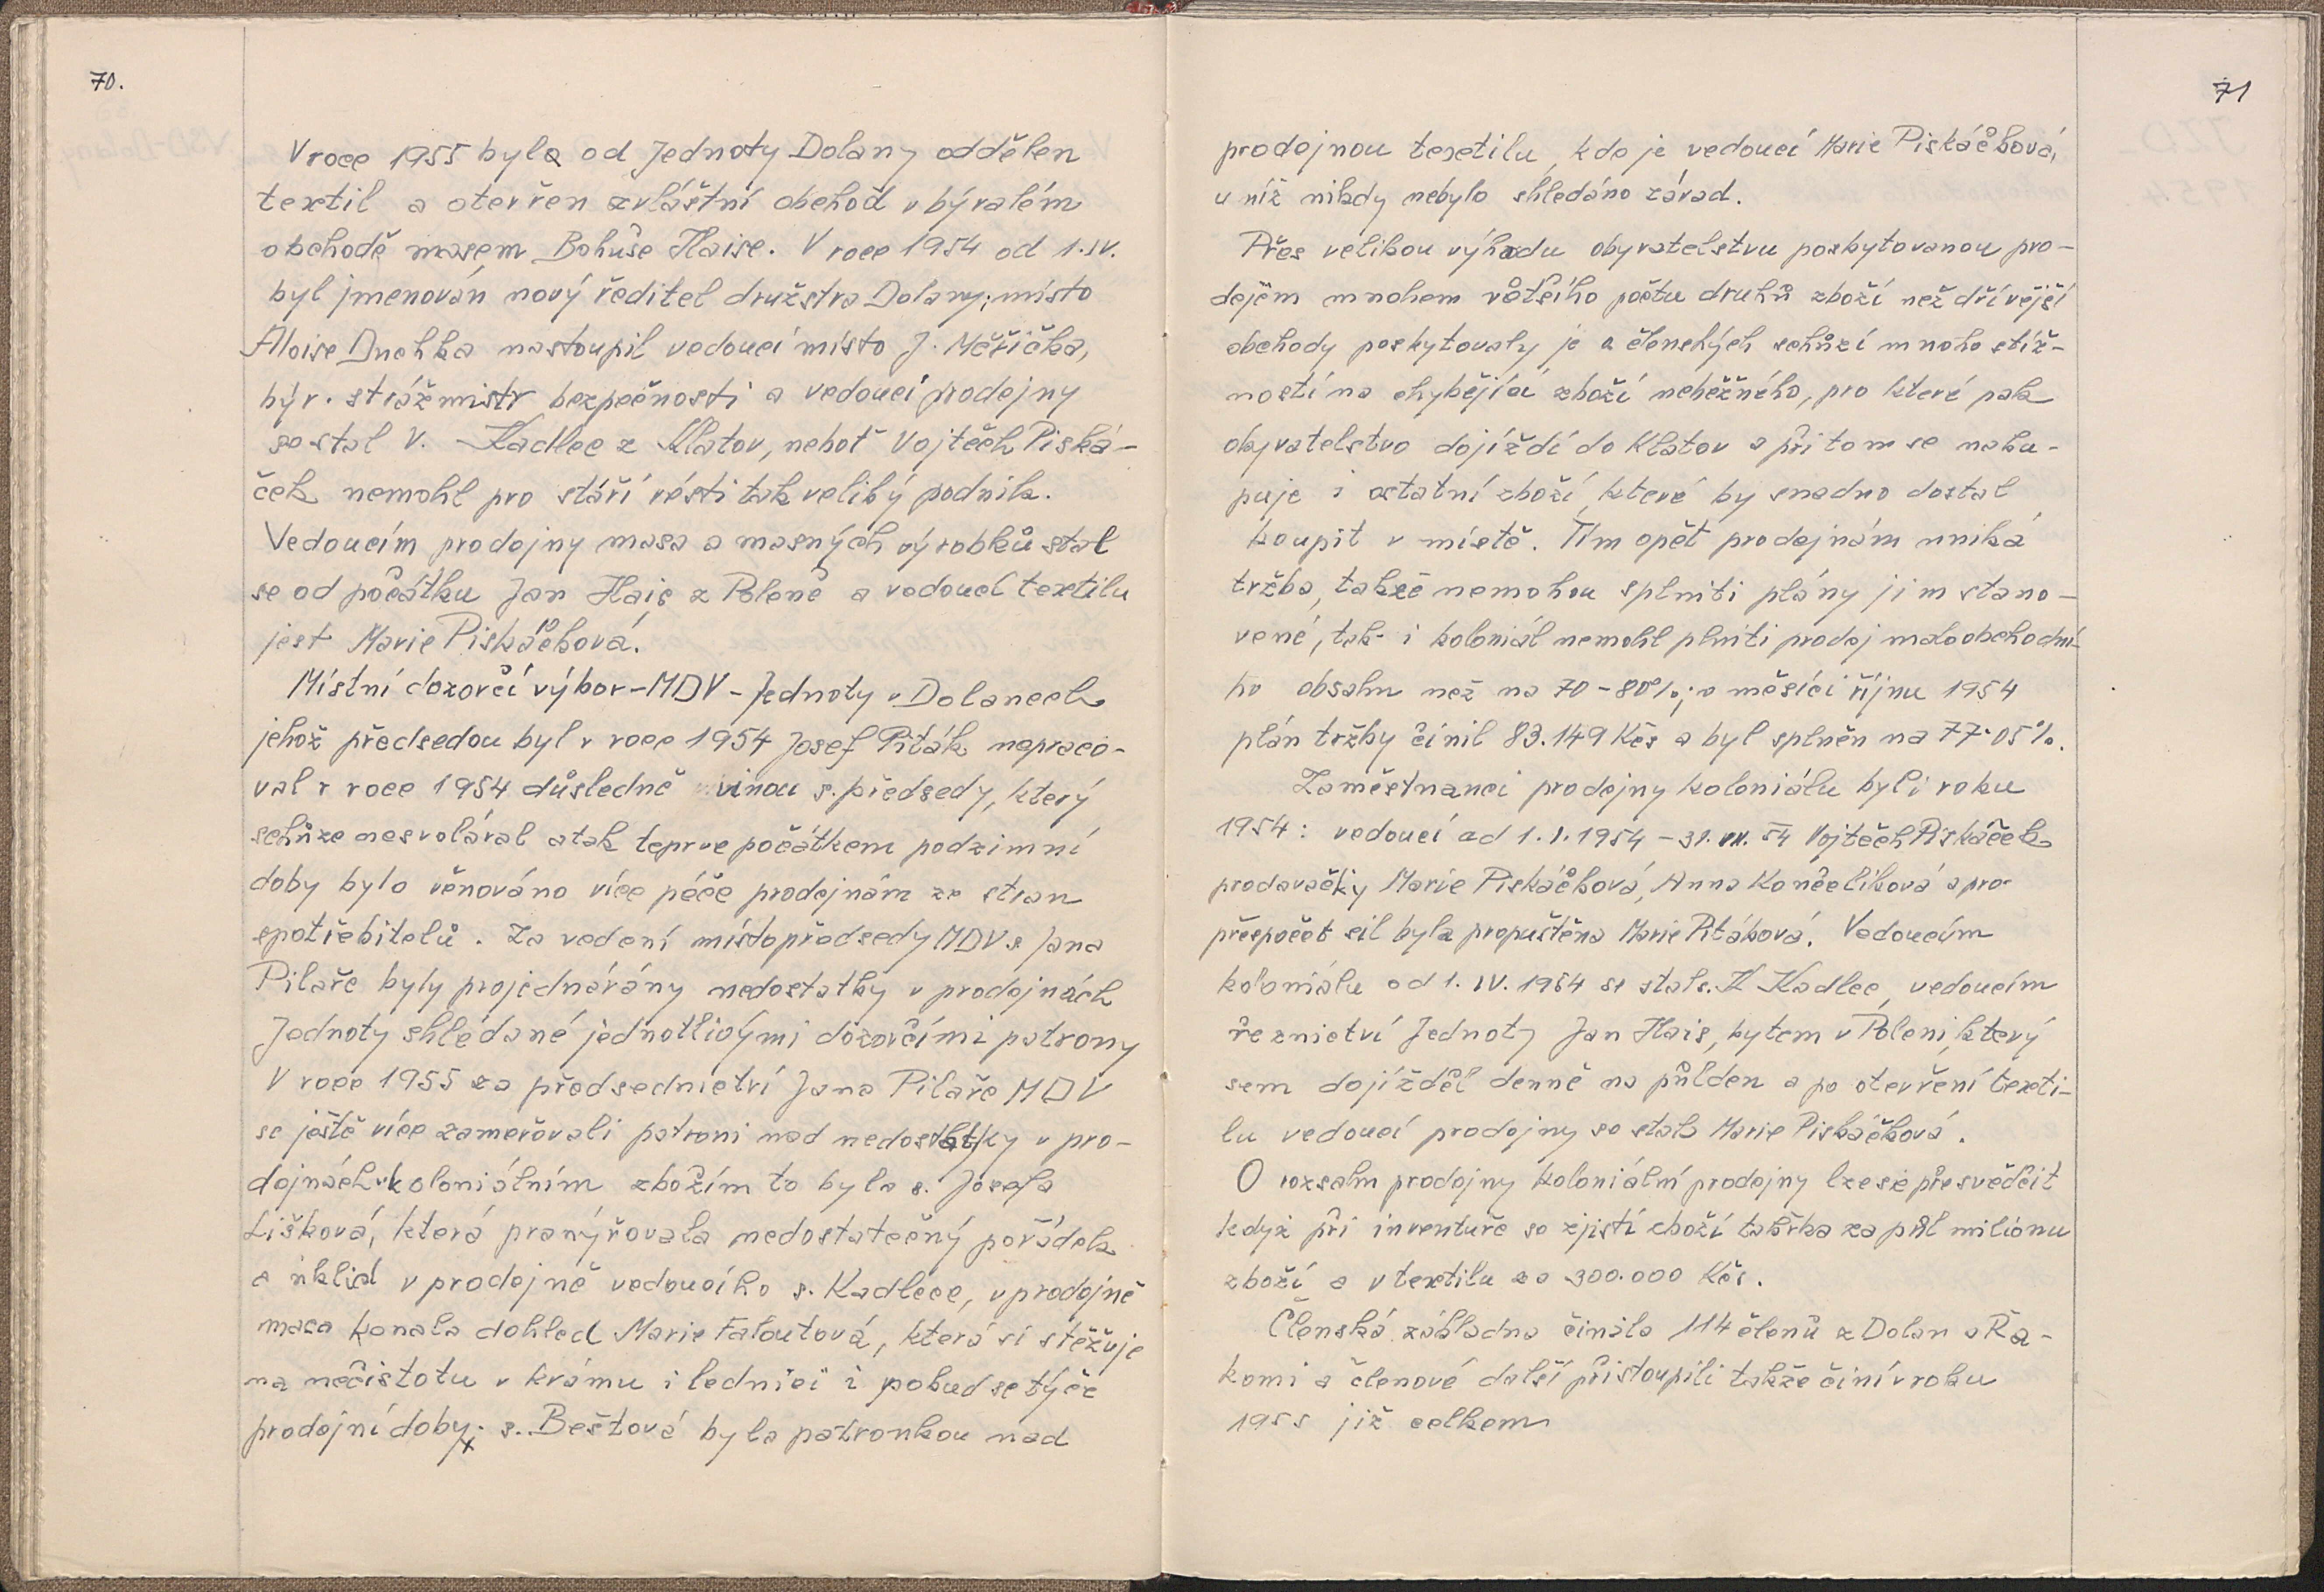 70.
V roce 1955 byla od Jednoty Dolany oddělen
textil a otevřen zvláštní obchod v bývalém
obchodě masem Bohuše Haise. V roce 1954 od 1.IV.
byl jmenován nový ředitel družstva Dolany; místo
Aloise Duchka nastoupil vedoucí místo J. Měřička,
býv. strážmistr bezpečnosti a vedoucí prodejny
se stal V. Kadlec z Klatov, neboť Vojtěch Piská-
ček nemohl pro stáří vésti tak veliký podnik.
Vedoucím prodejny masa a masných výrobků stal
se od počátku Jan Hais z Poleně a vedoucí textilu
jest Marie Piskáčková.
Místní dozorčí výbor - MDV - Jednoty v Dolanech
jehož předsedou byl v roce 1954 Josef Piták nepraco-
val v roce 1954 důsledně vinou s. předsedy, který
schůze nesvolával a tak teprve počátkem podzimní
doby bylo věnováno více péče prodejnám ze stran
spotřebitelů. Za vedení místopředsedy MDV s Jana
Pilaře byly projednávány nedostatky v prodejnách
Jednoty shledané jednotlivými dozorčími patrony
V roce 1955 za předsednictví Jana Pilaře MDV
se ještě více zameřovali patroni nad nedostatky v pro-
dejnách v koloniálním zbožím to byla s. Josefa
Lišková, která pranýřovala nedostatečný pořádek
a úklid v prodejně vedoucího s. Kadlece, v prodejně
masa konala dohled Marie Faloutová, která si stěžuje
na nečistotu v krámu i lednici i pokud se týče
prodejní doby; s. Beštová byla patronkou nad
71
prodejnou textilu, kde je vedoucí Marie Piskáčková,
u níž nikdy nebylo shledáno závad.
Přes velikou výhodu obyvatelstvu poskytovanou pro-
dejem mnohem většího počtu druhů zboží než dřívější
obchody poskytovaly je z členských schůzí mnoho stíž-
ností na chybějící zboží neběžného, pro které pak
obyvatelstvo dojíždí do Klatov a při tom se naku-
puje i ostatní zboží, které by snadno dostal
koupit v místě. Tím opět prodejnám uniká
tržba, takže nemohou splniti plány jim stano-
vené, tak i koloniál nemohl plniti prodej maloobchodní-
ho obsahu než na 70-80%; v měsíci říjnu 1954
plán tržby činil 83.149 Kčs a byl splněn na 77.05%.
Zaměstnanci prodejny koloniálu byli roku
1954: vedoucí od 1.I.1954 - 31. VII. 54 Vojtěch Piskáček
prodavačky Marie Piskáčková, Anna Končelíková a pro
přespočet sil byla propuštěna Marie Pitáková. Vedoucím
koloniálu od 1. IV. 1954 se stal s. K Kadlec, vedoucím
řeznictví Jednoty Jan Hais, bytem v Poleni, který
sem dojížděl denně na půlden a po otevření texti-
lu vedoucí prodejny se stala Marie Piskáčková.
O rozsahu prodejny koloniální prodejny lze se přesvědčit
když při inventuře se zjistí zboží takřka za půl miliónu
zboží a v textilu za 300.000 Kčs.
Členská základna činila 114 členů z Dolan a Ra-
komi a členové další přistoupili takže činí v roku
1955 již celkem